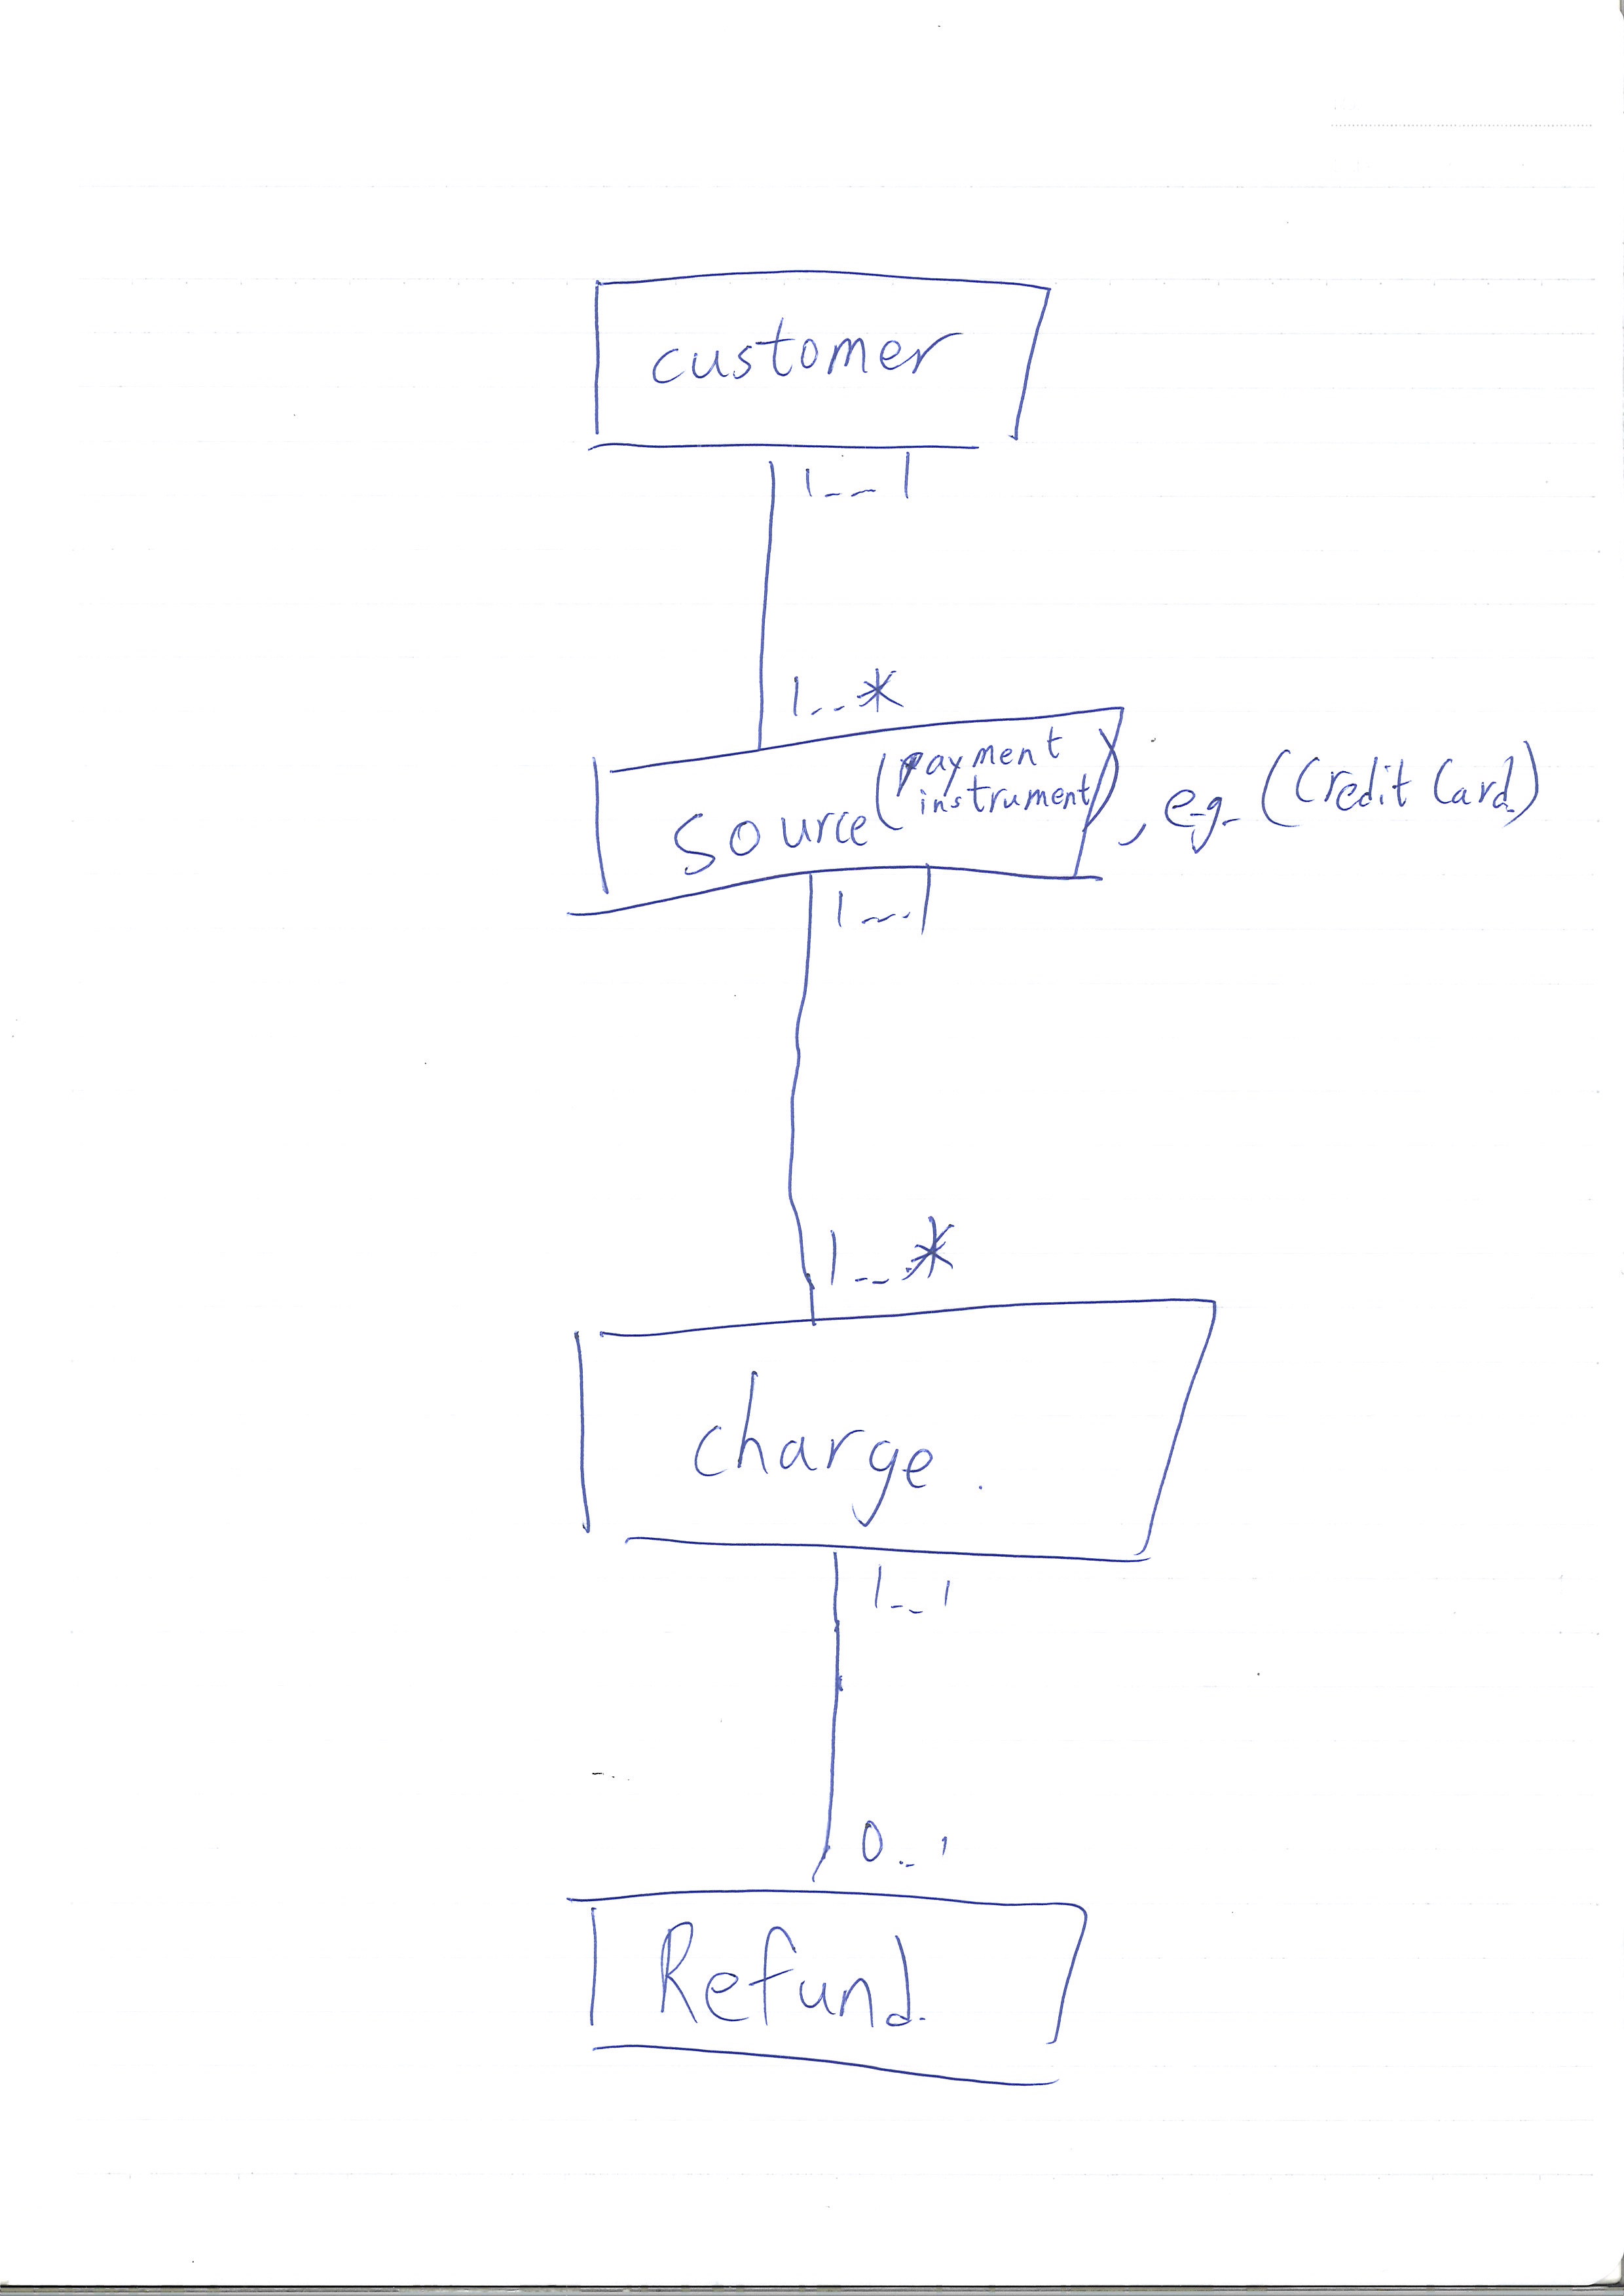 customer
1..1
1..*
Source (payment
instrument), e.g. (Credit Card)
1...1
1..*
charge.
1..1
0..1
Refund.